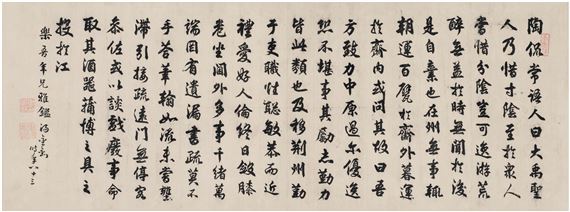 陶侃常語人曰大禹聖
人乃惜寸陰至於眾人
當惜分陰豈可逸游荒
醉無益於時無聞於後
是自棄也在州無事輒
朝運百甓於齋外暮運
於齋內或問其故曰吾
方致力中原過爾優逸
恐不堪事其勵志勤力
皆此類也及移荊州勤
于吏職性聰敏恭而近
禮愛好人倫終日斂膝
危坐閫外多事千緒萬
端罔有遺漏書疏莫不
手答筆翰如流未嘗壅
滯引接疏遠門無停客
參佐或以談戲廢事命
取其酒器蒱博之具之
投於江
樂吾年兄雅鑑
時年八十三